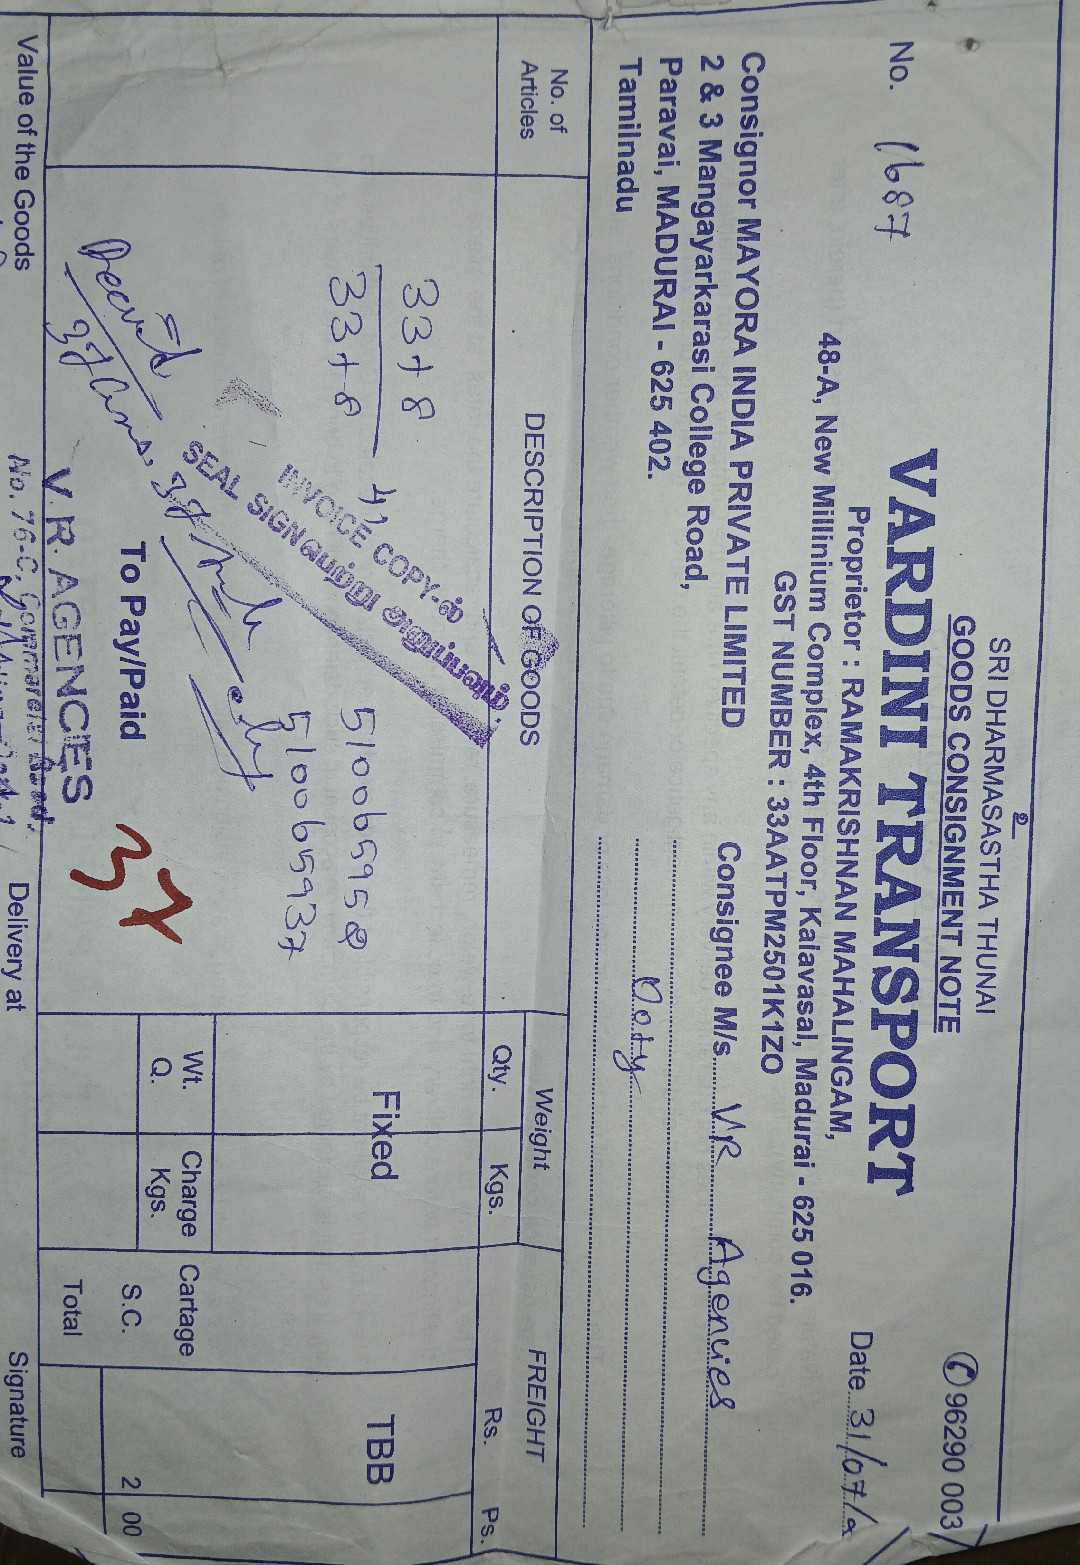 உ
SRI DHARMASASTHA THUNAI
GOODS CONSIGNMENT NOTE
✆ 96290 003
VARDINI TRANSPORT
No. 1687
Proprietor : RAMAKRISHNAN MAHALINGAM,
Date 31/07/2
48-A, New Millinium Complex, 4th Floor, Kalavasal, Madurai - 625 016.
GST NUMBER : 33AATPM2501K1ZO
Consignor MAYORA INDIA PRIVATE LIMITED
2 & 3 Mangayarkarasi College Road,
Paravai, MADURAI - 625 402.
Tamilnadu
Consignee M/s. V.R Agencies
Ooty
No. of Articles
DESCRIPTION OF GOODS
Weight
Qty. Kgs.
FREIGHT
Rs. Ps.
33+8
33+8
510065958
510065937
Fixed
TBB
INVOICE COPY-ல்
SEAL SIGN பெற்று அனுப்பவும்.
37
Wt. Q.
Charge Kgs.
Cartage
S.C. 2 00
Total
To Pay/Paid
V. R. AGENCES
No. 76-C, Commercial Road,
Value of the Goods
Delivery at
Signature